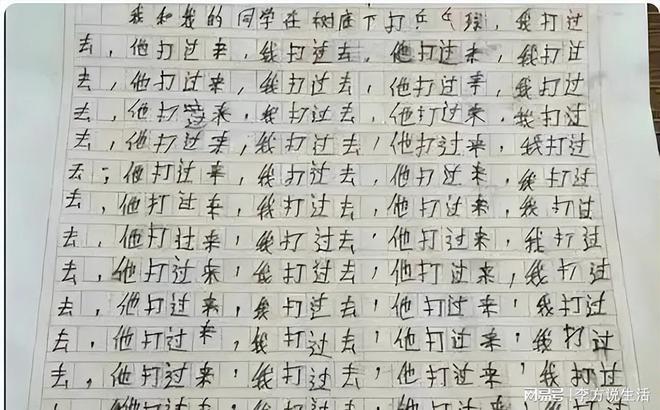 我和我的同学在树底下打乒乓球，我打过
去，他打过来，我打过去，他打过来，我打过
去，他打过来，我打过去，他打过来，我打过
去，他打过来，我打过去，他打过来，我打过
去，他打过来，我打过去，他打过来，我打过
去，他打过来，我打过去，他打过来，我打过
去，他打过来，我打过去，他打过来，我打过
去，他打过来，我打过去，他打过来，我打过
去，他打过来，我打过去，他打过来，我打过
去，他打过来，我打过去，他打过来，我打过
去，他打过来，我打过去，他打过来，我打过
去，他打过来，我打过去，他打过来，我打过
去，他打过来，我打过去，他打过来，我打过
搜狐号@李方说生活